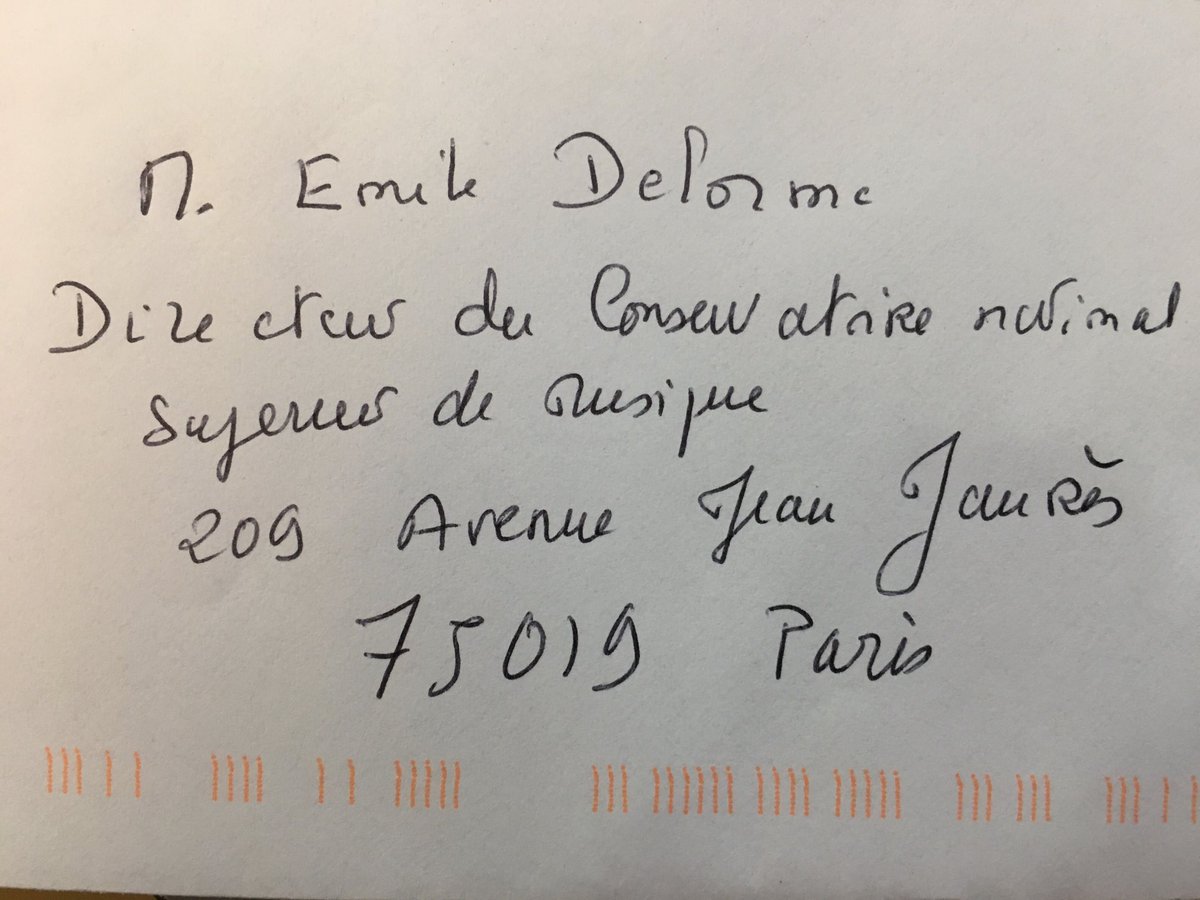 M. Emile Delorme
Directeur du Conservatoire national
superieur de musique
209 Avenue Jean Jaurès
75019 Paris